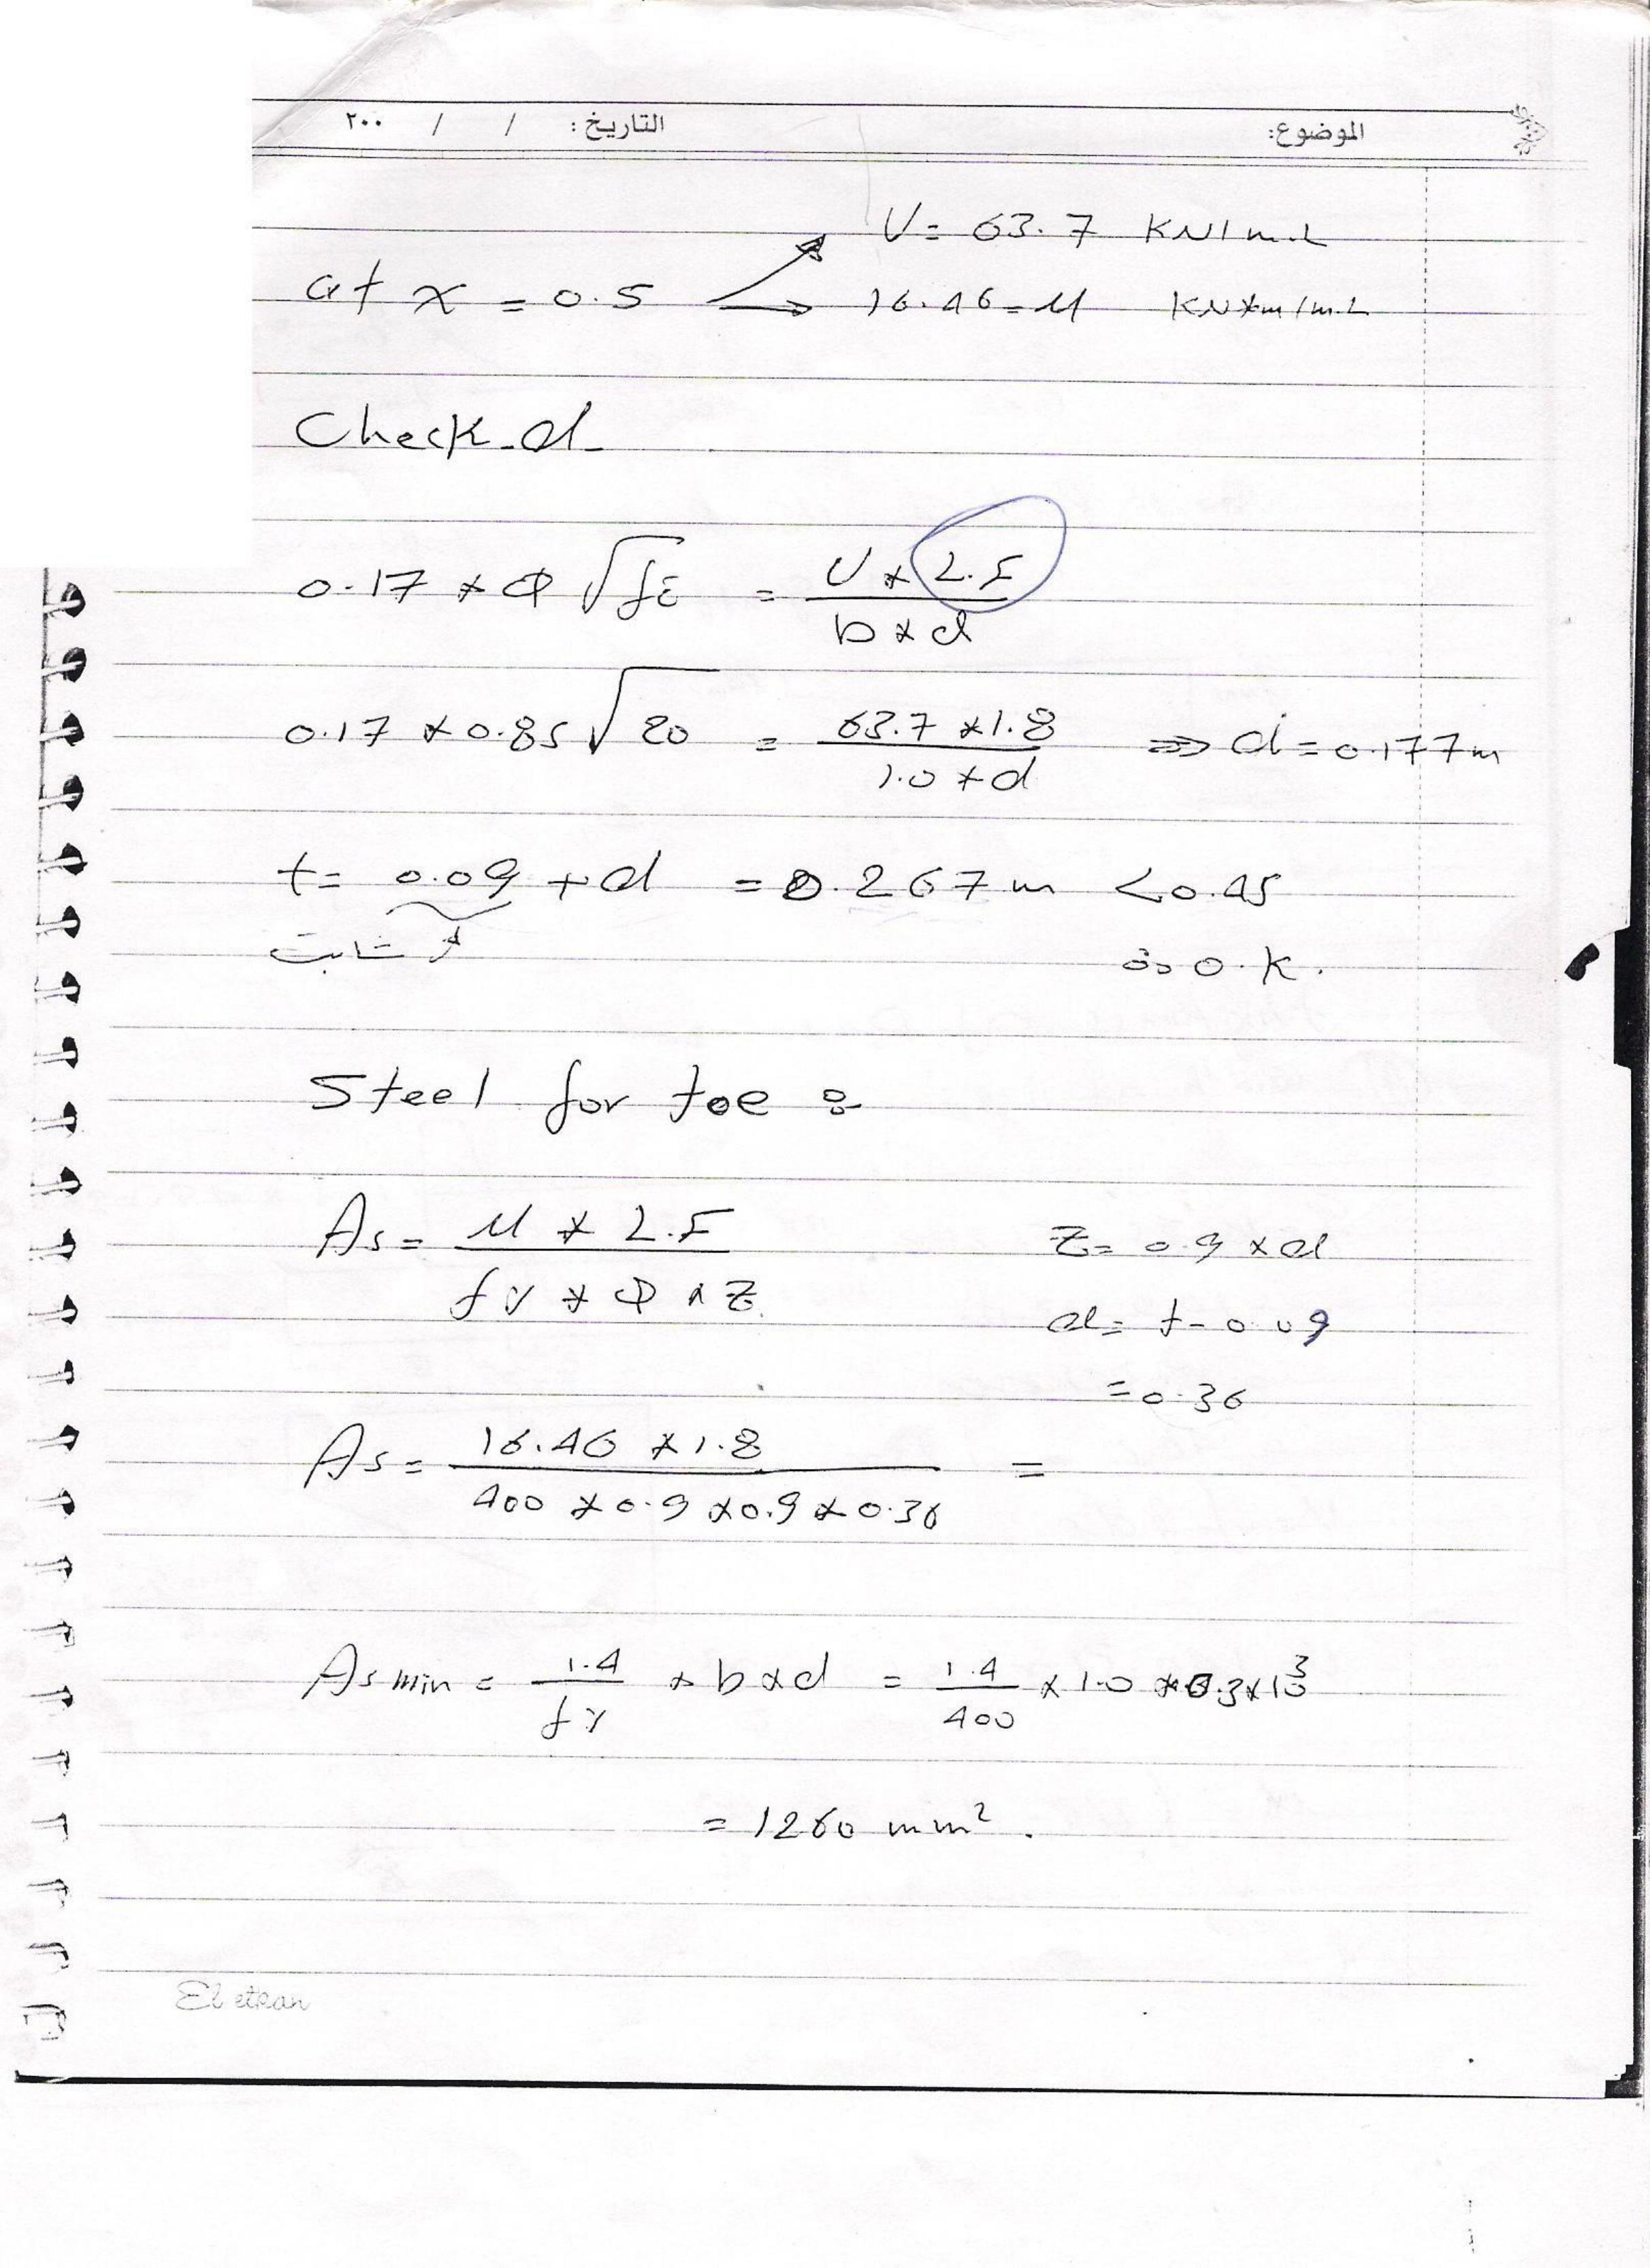 الموضوع: التاريخ: / / ٢٠٠
V = 63.7 KN/m.L
at x = 0.5 16.46 = M KN*m/m.L
Check d
0.17 * Φ √fc = V * L.F / b * d
0.17 * 0.85 √20 = 63.7 * 1.8 / 1.0 * d ⇒ d = 0.177 m
t = 0.09 + d = 0.267 m < 0.45
ثابت ∴ O.K.
Steel for toe :-
As = M * L.F / fy * Φ * Z Z = 0.9 * d
d = t - 0.09
= 0.36
As = 16.46 * 1.8 / 400 * 0.9 * 0.9 * 0.36 =
As min = 1.4 / fy * b * d = 1.4 / 400 * 1.0 * 0.3 * 10³
= 1260 mm².
El etkan